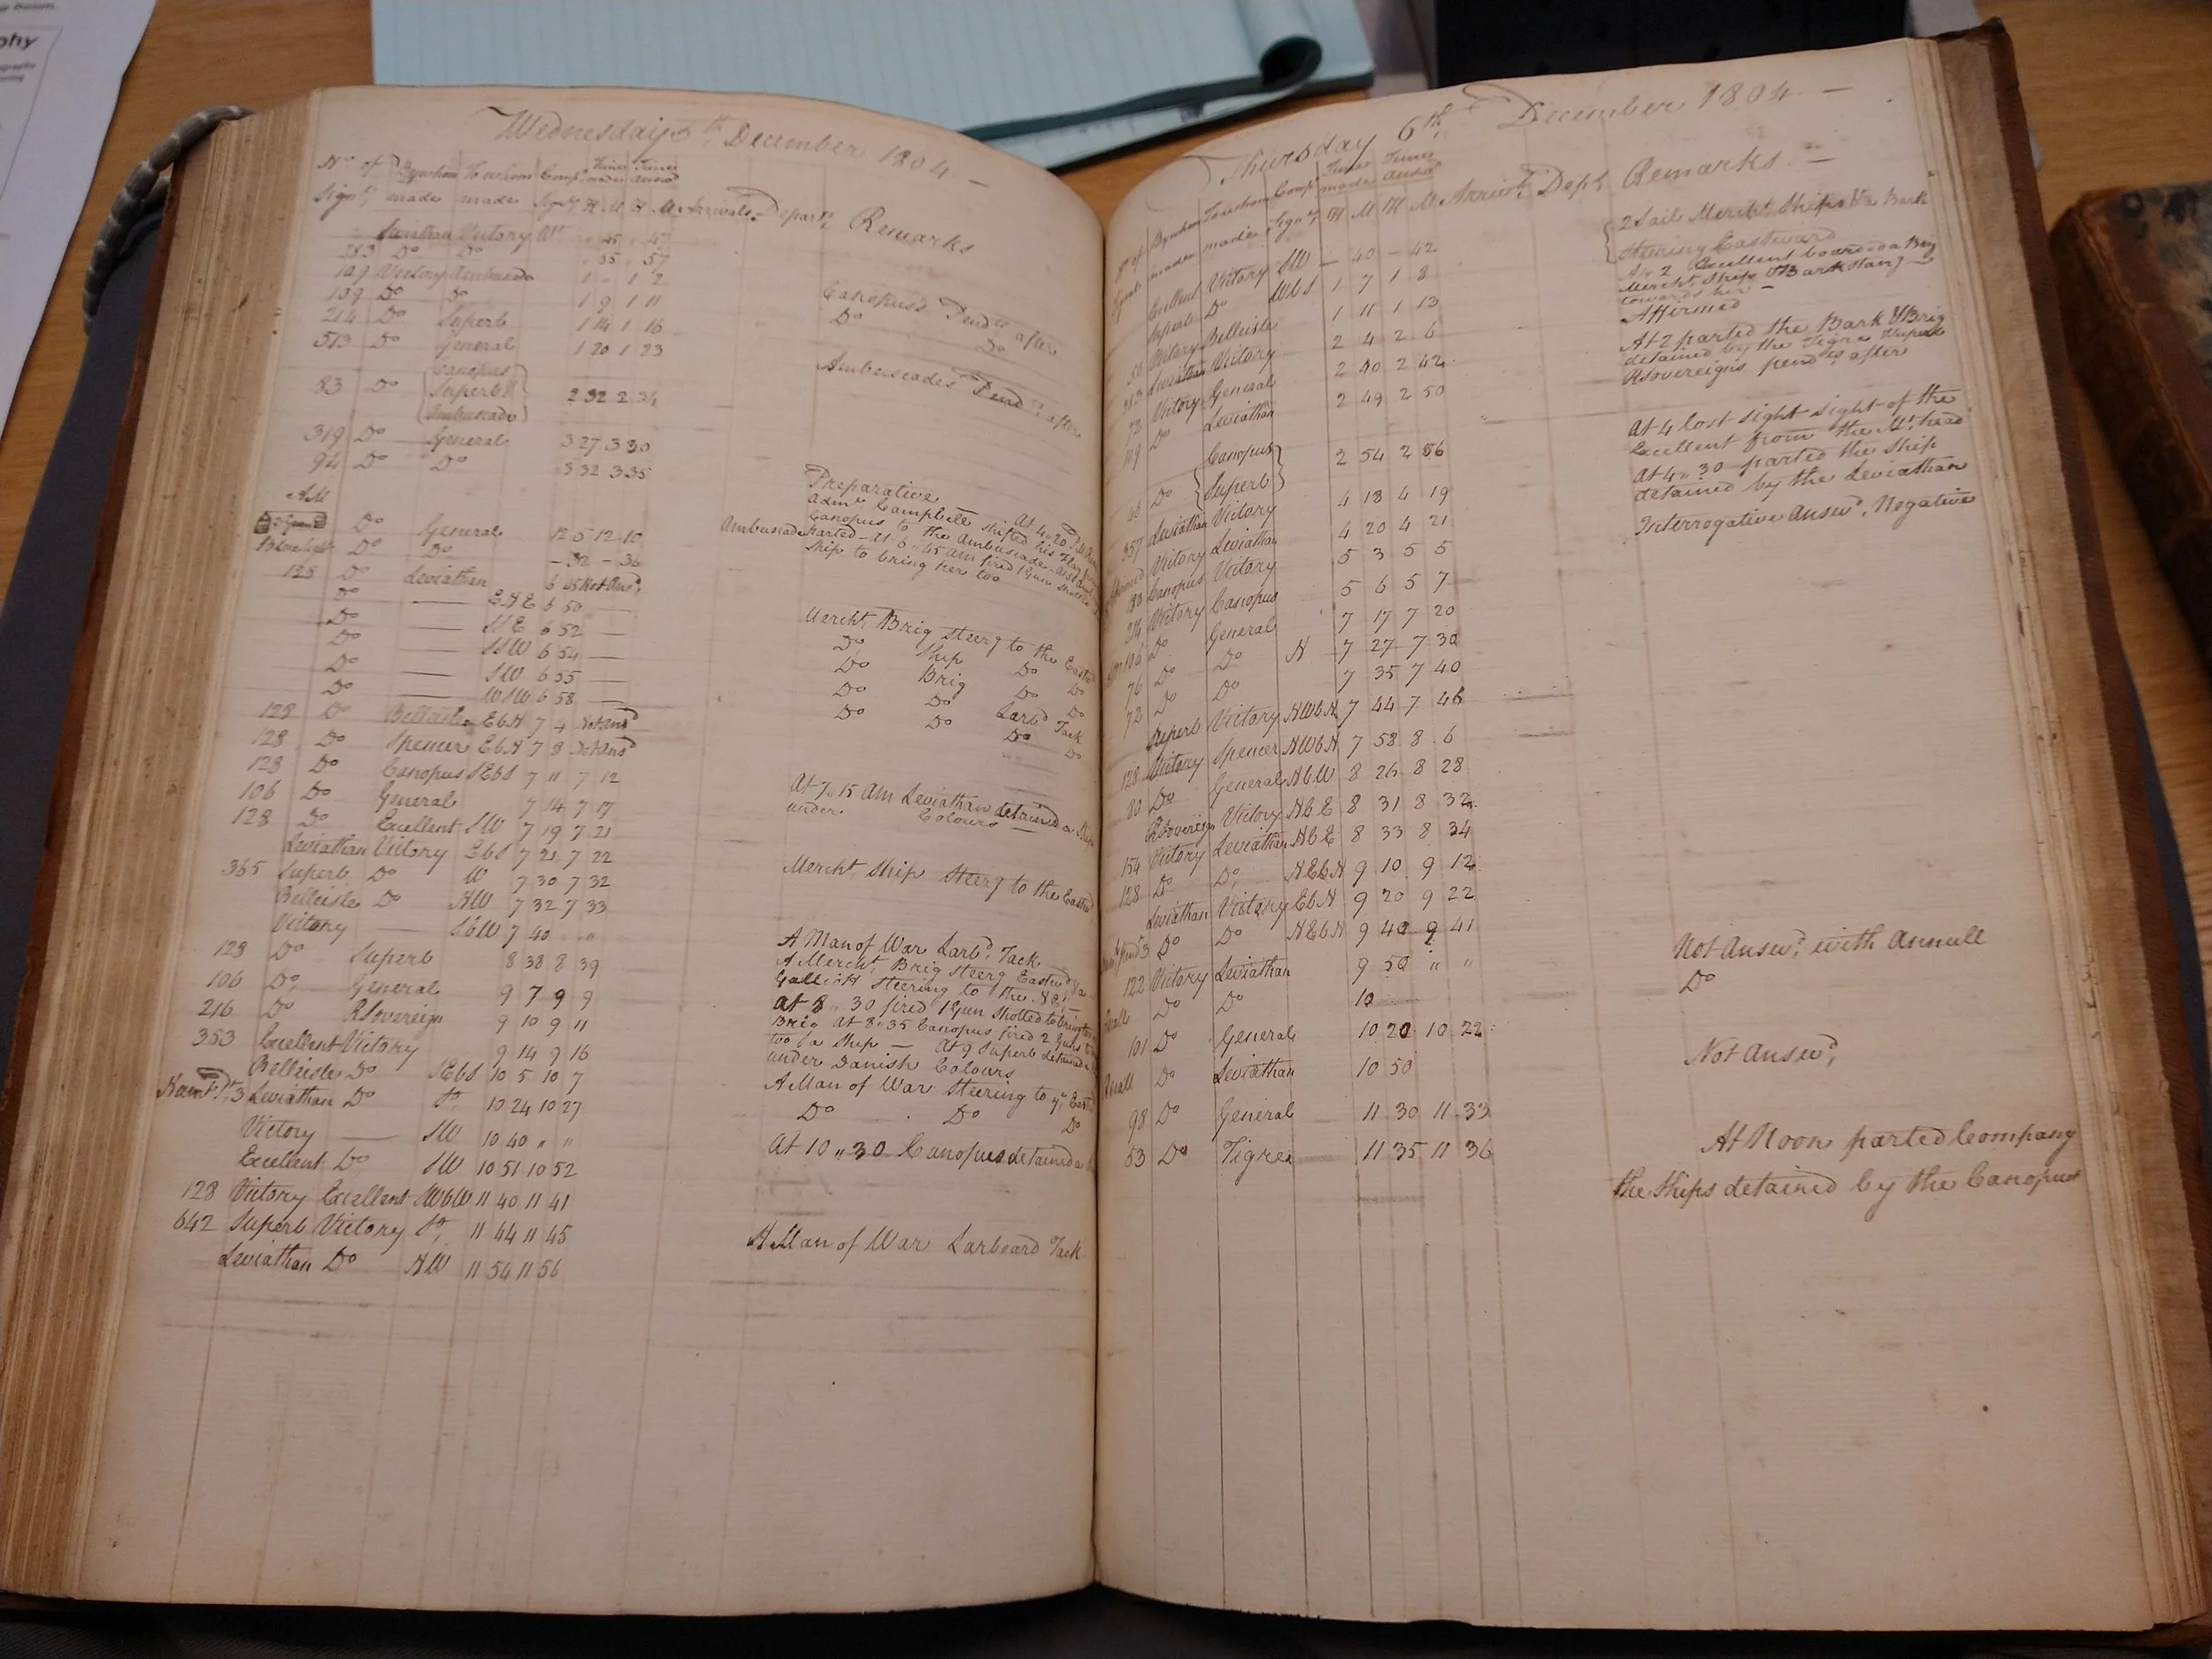 Wednesday 5th December 1804 —
No of By whom To whom Comps Times Times
Signl made made Signl H M H M Arrivals Depart. Remarks
Leviathan Victory Wt " 45 " 47
283 Do Do " 55 " 57
109 Victory Ambuscade 1 " 1 2
109 Do Do 1 9 1 11 Canopus's Pendts after
214 Do Superb 1 14 1 16 Do Do
513 Do General 1 20 1 23
Canopus
83 Do Superb 2 32 2 34 Ambuscades Pendts after
Ambuscade
319 Do General 3 27 3 30
94 Do Do 3 32 3 35
AM Preparative
Do General 12 5 12 10 Admr Campbell shifted his Flag from
Do Do - 32 - 36 Canopus to the Ambuscade
128 Do Leviathan 6 45 Not Ansd Ship to bring her too
Do — ENE 6 50 —
Do — SE 6 52 — Mercht Brig steerg to the Eastd
Do — SSW 6 54 — Do Ship Do Do
Do — SW 6 55 — Do Brig Do Do
Do — WSW 6 58 — Do Do Larbd Tack
128 Do Belleisle EbN 7 4 Not Ansd Do Do Do Do
128 Do Spencer EbN 7 8 Not Ansd
128 Do Canopus SEbS 7 11 7 12
106 Do General 7 14 7 17 At 7.15 AM Leviathan detained a Ship
128 Do Excellent SW 7 19 7 21 under Colours —
Leviathan Victory EbS 7 21 7 22
365 Superb Do W 7 30 7 32 Mercht Ship Steerg to the Eastd
Belleisle Do NW 7 32 7 33
Victory — SbW 7 40 "
128 Do Superb 8 38 8 39 A Man of War Larbd Tack
106 Do General 9 7 9 9 A Mercht Brig steerg Eastwd & a
216 Do RSovereign 9 10 9 11 Galliot steering to the NE
353 Excellent Victory 9 14 9 16 At 8 " 30 fired 1 Gun shotted to bring too
Brig At 8 " 35 Canopus fired 2 Guns to
too a Ship — At 9 Superb detained a
Belleisle Do SEbS 10 5 10 7 under Danish Colours
3 Leviathan Do 10 24 10 27 A Man of War Steering to ye Eastd
Victory — SW 10 40 " " Do Do Do
Excellent Do SW 10 51 10 52 At 10 " 30 Canopus detained a
128 Victory Excellent WbW 11 40 11 41
642 Superb Victory 11 44 11 45
Leviathan Do NW 11 54 11 56 A Man of War Larboard Tack
Thursday 6th December 1804 —
No of By whom To whom Comps Times Times
Signls made made Signl H M H M Arrivls Dept Remarks —
Excellent Victory SW — 40 — 42 2 Sail Mercht Ships & a Bark
Steering Eastward
Superb Do WbS 1 7 1 8 At 2 Excellent boarded a Brig
Mercht Ship & Bark standg
towards her —
56 Victory Belleisle 1 11 1 13 Affirmed
353 Leviathan Victory 2 4 2 6 At 2 parted the Bark & Brig
detained by the Tigre
73 Victory General 2 40 2 42 RSovereigns pendts after
109 Do Leviathan 2 49 2 50
Canopus
Do Superb 2 54 2 56 At 4 lost sight sight of the
Excellent from the Mt head
357 Leviathan Victory 4 18 4 19 At 4 " 30 parted the Ship
Victory Leviathan 4 20 4 21 detained by the Leviathan
Canopus Victory 5 3 5 5 Interrogative Answd Negative
214 Victory Canopus 5 6 5 7
106 Do General 7 17 7 20
76 Do Do N 7 27 7 30
72 Do Do 7 35 7 40
Superb Victory NWbN 7 44 7 46
128 Victory Spencer NWbN 7 58 8 6
80 Do General NbW 8 26 8 28
RSovereign Victory NbE 8 31 8 32
154 Victory Leviathan NbE 8 33 8 34
128 Do Do NEbN 9 10 9 12
Leviathan Victory EbN 9 20 9 22
3 Do Do NEbN 9 40 9 41
122 Victory Leviathan 9 50 " " Not Answd with Annull
Do Do 10 Do
101 Do General 10 20 10 22
Do Leviathan 10 50 Not Answd
98 Do General 11 30 11 33
53 Do Tigre 11 35 11 36 At Noon parted Company
the Ships detained by the Canopus